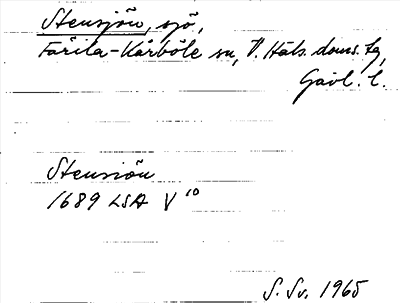 Stensjön, sjö,
Färila-Kårböle sn, V. Häls. doms. tg,
Gävl. l.
Stensiön
1689 LSA V 10
S. Sv. 1965